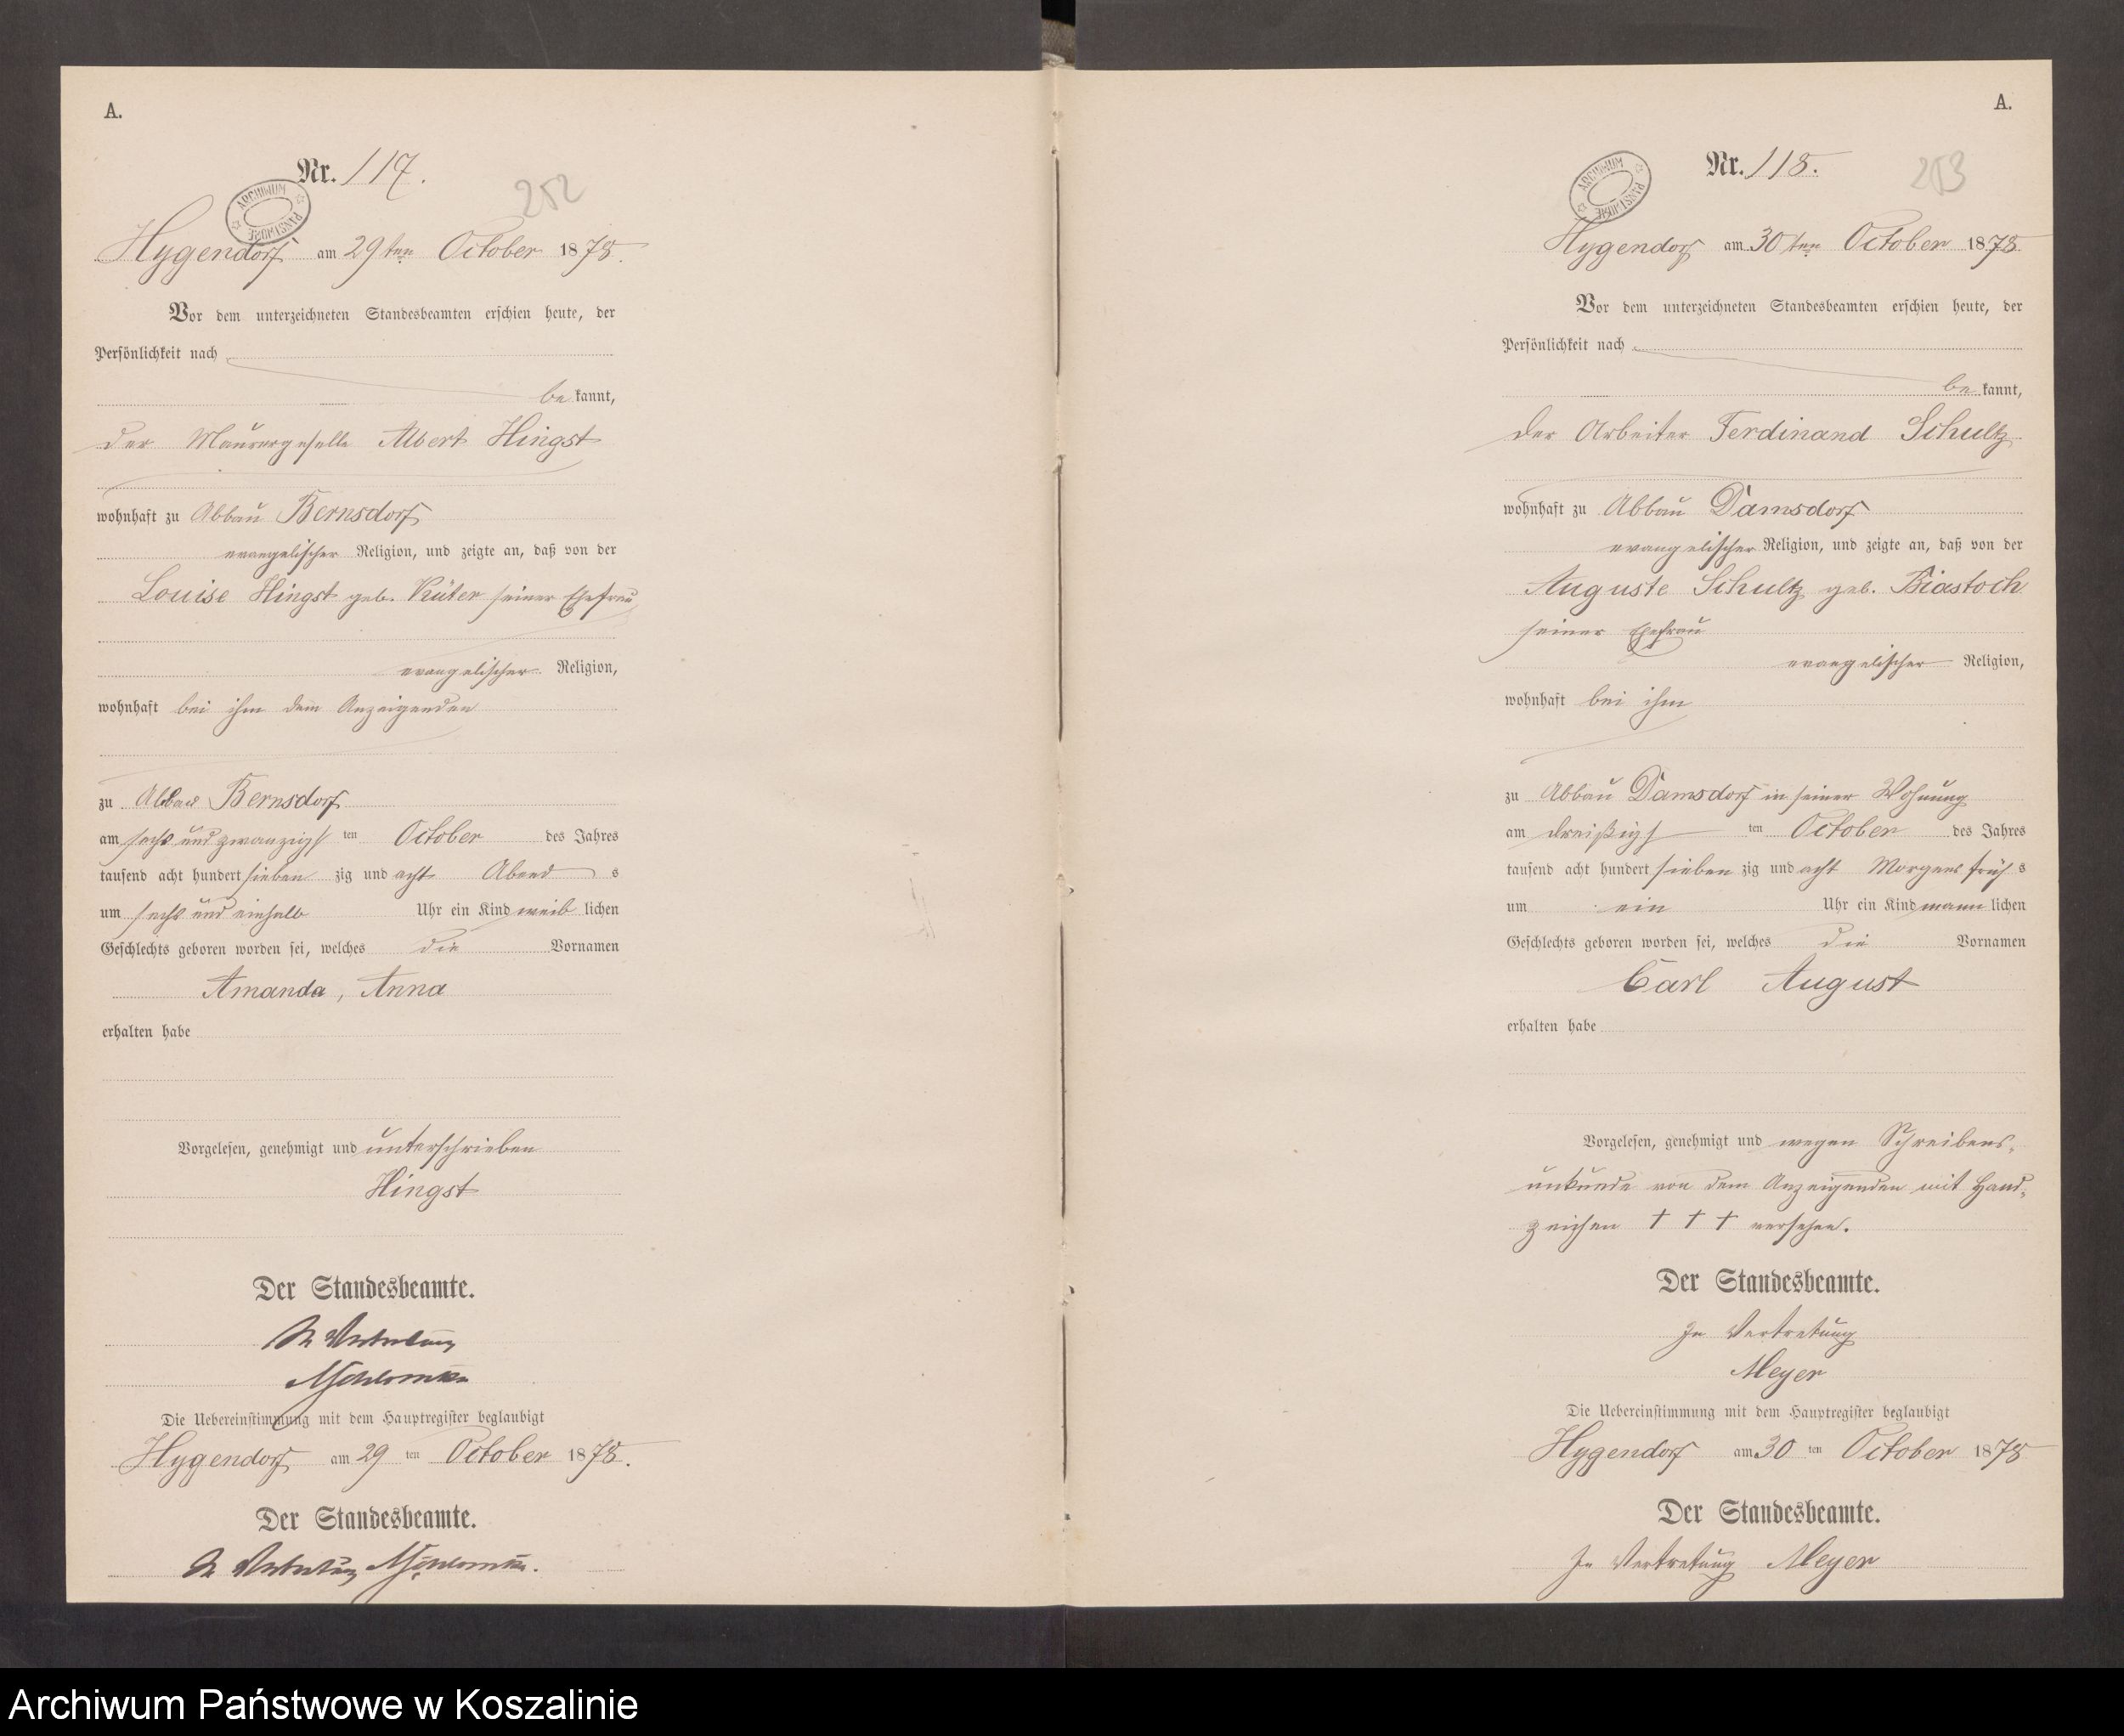 A.
Nr. 117.
252
ARCHIWUM PAŃSTWOWE
Hygendorf am 29ten October 1878.
Vor dem unterzeichneten Standesbeamten erschien heute, der
Persönlichkeit nach
be kannt,
der Maurergeselle Albert Hingst
wohnhaft zu Abbau Bernsdorf
evangelischer Religion, und zeigte an, daß von der
Louise Hingst geb. Küter seiner Ehefrau
evangelischer Religion,
wohnhaft bei ihm dem Anzeigenden
zu Abbau Bernsdorf
am sechs und zwanzigsten October des Jahres
tausend acht hundert sieben zig und acht Abend s
um sechs und einhalb Uhr ein Kind weib lichen
Geschlechts geboren worden sei, welches die Vornamen
Amanda, Anna
erhalten habe
Vorgelesen, genehmigt und unterschrieben
Hingst
Der Standesbeamte.
In Vertretung
Die Uebereinstimmung mit dem Hauptregister beglaubigt
Hygendorf am 29 ten October 1878.
Der Standesbeamte.
In Vertretung
A.
Nr. 118.
253
ARCHIWUM PAŃSTWOWE
Hygendorf am 30ten October 1878
Vor dem unterzeichneten Standesbeamten erschien heute, der
Persönlichkeit nach
be kannt,
der Arbeiter Ferdinand Schultz
wohnhaft zu Abbau Damsdorf
evangelischer Religion, und zeigte an, daß von der
Auguste Schultz geb. Biastoch
seiner Ehefrau
evangelischer Religion,
wohnhaft bei ihm
zu Abbau Damsdorf in seiner Wohnung
am dreißigsten October des Jahres
tausend acht hundert sieben zig und acht Morgens früh s
um ein Uhr ein Kind männ lichen
Geschlechts geboren worden sei, welches die Vornamen
Carl August
erhalten habe
Vorgelesen, genehmigt und wegen Schreibens-
unkunde von dem Anzeigenden mit Hand-
zeichen † † † versehen.
Der Standesbeamte.
In Vertretung
Meyer
Die Uebereinstimmung mit dem Hauptregister beglaubigt
Hygendorf am 30 ten October 1878
Der Standesbeamte.
In Vertretung Meyer
Archiwum Państwowe w Koszalinie